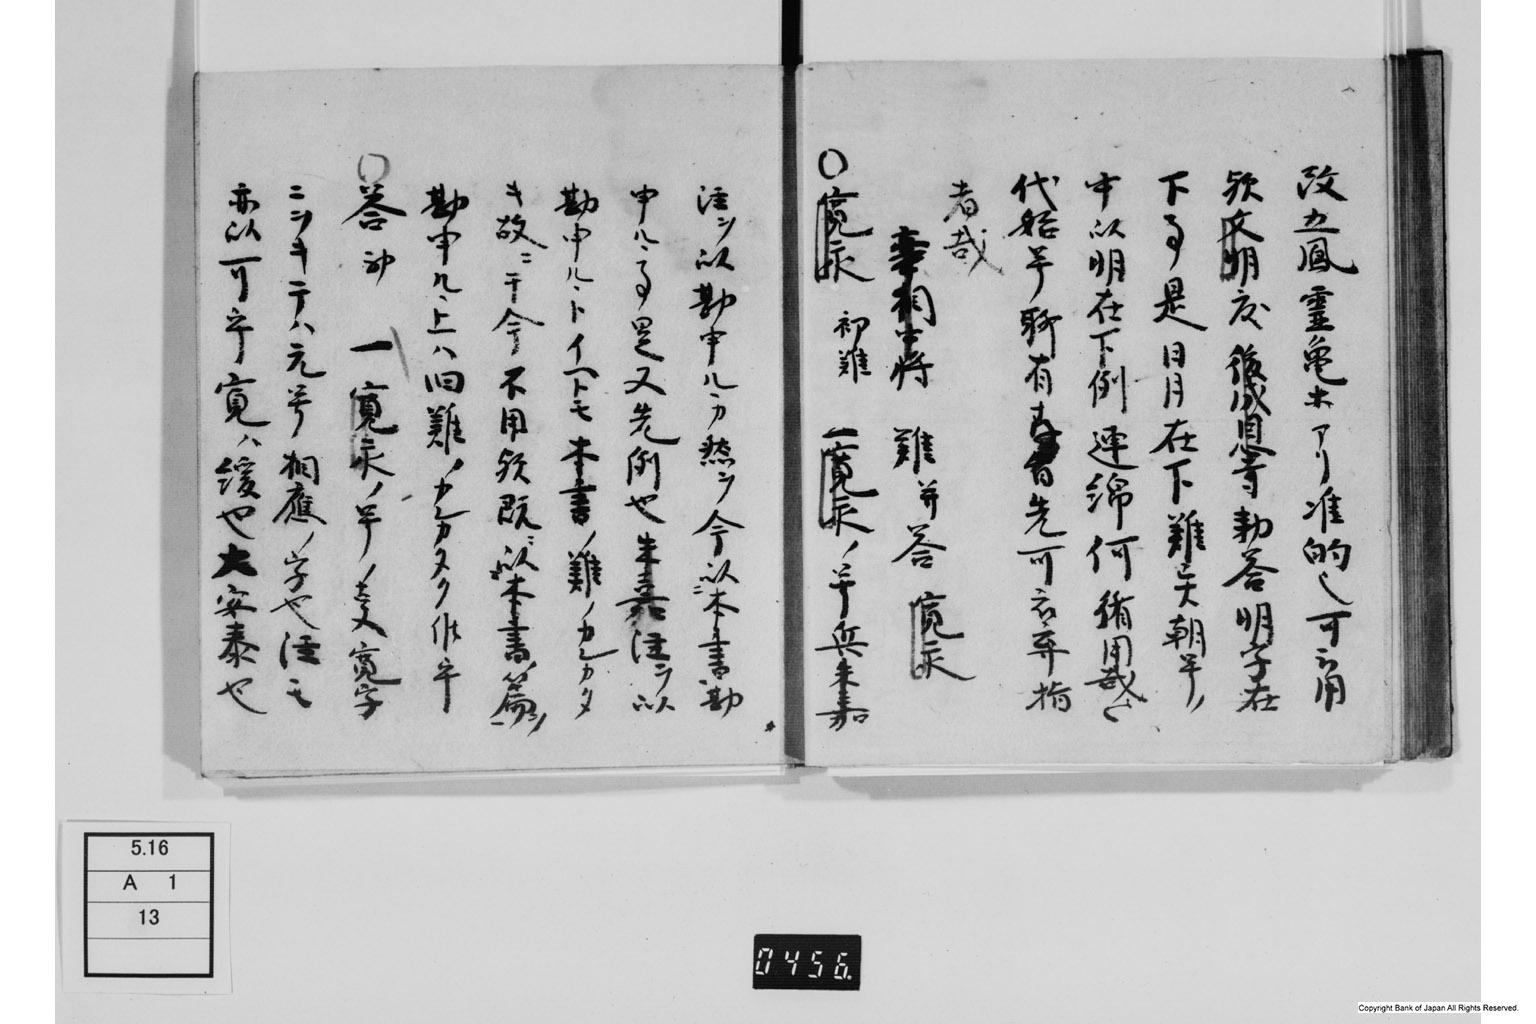 改五鳳靈亀ホアリ准的之可云用
歟文明度後成恩寺勅答明字在
下事是日月在下難云朝号ノ
中以明在下例連綿何猶用哉云々
代始号聊有先可被弃指
者哉
宰相中将 難并答 寛永
○寛永 初難 一寛永ノ号無朱嘉
注シ以勘申ルカ然シ今以本書勘
申ルヿ事是又先例也朱嘉注シ以
勘申ルヽトイヘトモ本書ノ難ノカレカタ
キ故ニ于今不用歟既ニ以本書ノ篇シ
勘申ル上ハ旧難ノカレカタク候乎
○答初 一寛永ノ号ノ文寛字
ニヲキテハ元号相應ノ字也注モ
亦以可乎寛ハ緩也大安泰也
5.16
A 1
13
0456.
Copyright Bank of Japan All Rights Reserved.